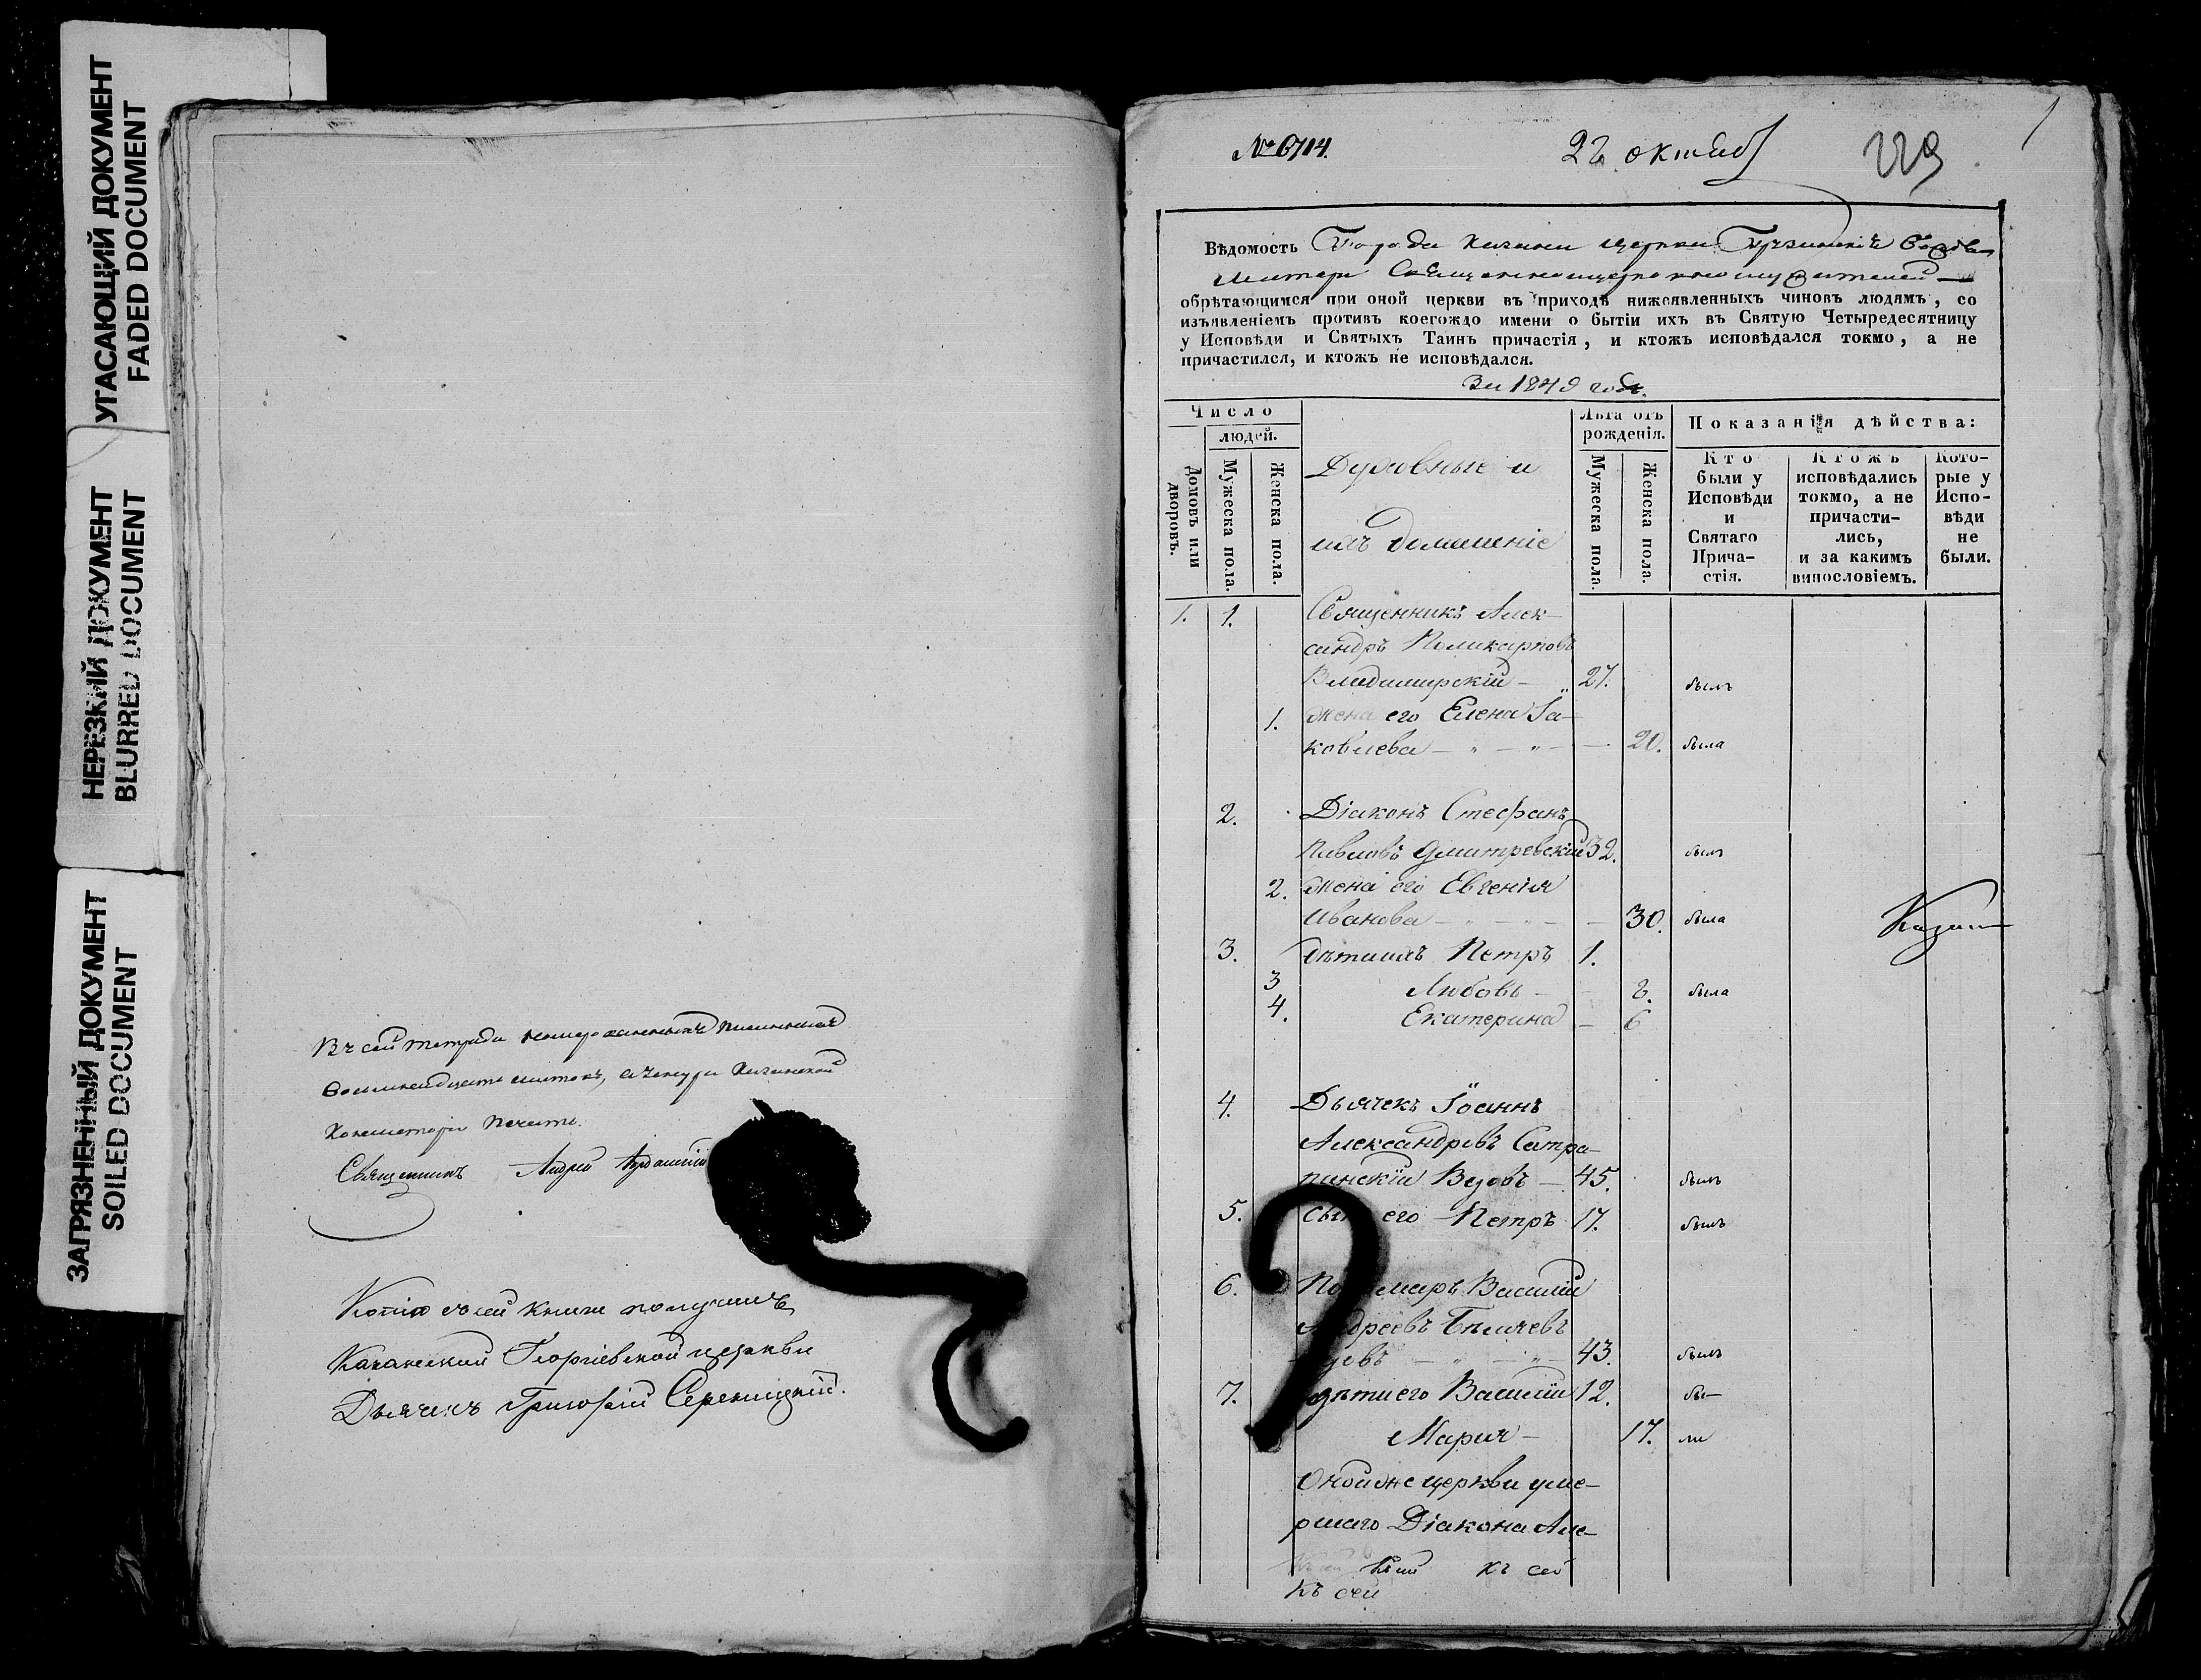 УГАСАЮЩИЙ ДОКУМЕНТ
FADED DOCUMENT
НЕРЕЗКИЙ ДОКУМЕНТ
BLURRED DOCUMENT
ЗАГРЯЗНЕННЫЙ ДОКУМЕНТ
SOILED DOCUMENT
Въ сей тетради
восемнадцать листовъ,
Печать.
Священникъ Андрей
Копію съ сей книги получилъ
Казанской Георгіевской церкви
Дьячекъ Григорій
№ 6714.
22 октяб
229
1
Вѣдомость Города Казани церкви Грузинскія
Матери
обрѣтающимся при оной церкви въ приходѣ нижеявленныхъ чиновъ людямъ, со
изъявленіемъ противъ коегождо имени о бытіи ихъ въ Святую Четыредесятницу
у Исповѣди и Святыхъ Таинъ причастія, и ктожъ исповѣдался токмо, а не
причастился, и ктожъ не исповѣдался.
За 1849 годъ.
Число
людей.
Домовъ или дворовъ.
Мужеска пола.
Женска пола.
Духовные и
ихъ домашніе
Лѣта отъ
рожденія.
Мужеска пола.
Женска пола.
Показанія дѣйства:
Кто
были у
Исповѣди
и
Святаго
Прича-
стія.
Ктожъ
исповѣдались
токмо, а не
причасти-
лись,
и за какимъ
винословіемъ.
Кото-
рые у
Испо-
вѣди
не
были.
1. 1. Священникъ Алек-
сандръ Поликарповъ
Владимирскій — 27. былъ
1. жена его Елена Іа-
ковлева — „ — „ — 20. была
2. Діаконъ Стефанъ
Павловъ Дмитревскій 32. былъ
2. жена его Евгенія
Иванова — „ — „ — 30. была
Казан
3. дѣти ихъ Петръ 1.
3 Любовь — 8. была
4. Екатерина — 6
4. Дьячекъ Іоаннъ
Александровъ Сатра-
пинскій Вдовъ — 45. былъ
5. сынъ его Петръ 17. былъ
6. Пономарь Василій
Андреевъ Бѣляевъ
вдовъ — „ — „ — 43. былъ
7. дѣти его Василій 12. бы-
Марія — 17. ли
Оной же церкви уме-
ршаго Діакона Але-
къ сей
къ сей